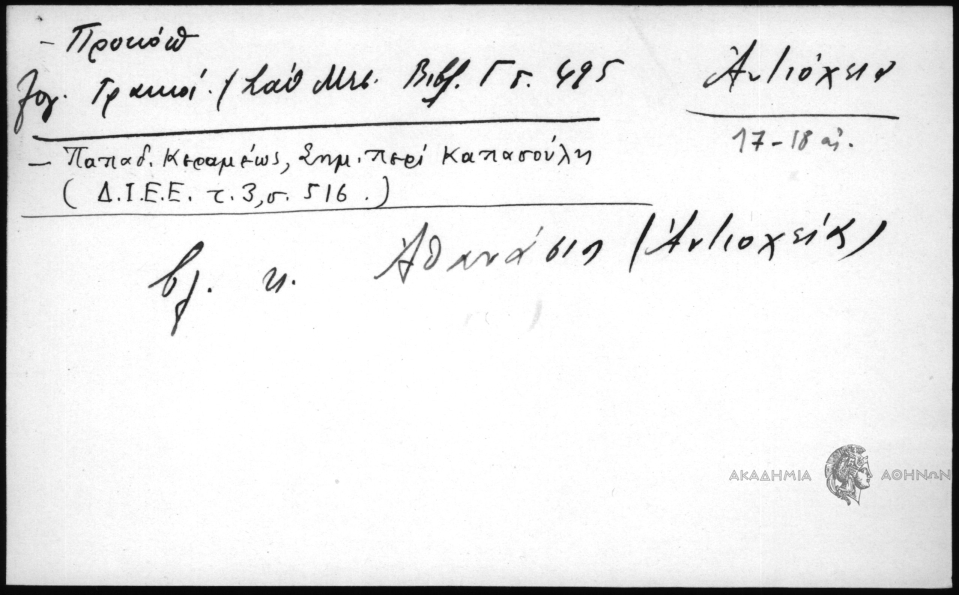 – Προκόπ
Γραικοί / Σάθ Μεσ. Βιβλ. Γ σ. 495
Ἀντιόχεια
17–18 αἰ.
– Παπαδ. Κεραμέως, Σημ. περί Καπασούλη
( Δ.Ι.Ε.Ε. τ. 3, σ. 516 .)
βλ. κ. Ἀθανάσιο (Ἀντιοχείας)
ΑΚΑΔΗΜΙΑ ΑΘΗΝΩΝ